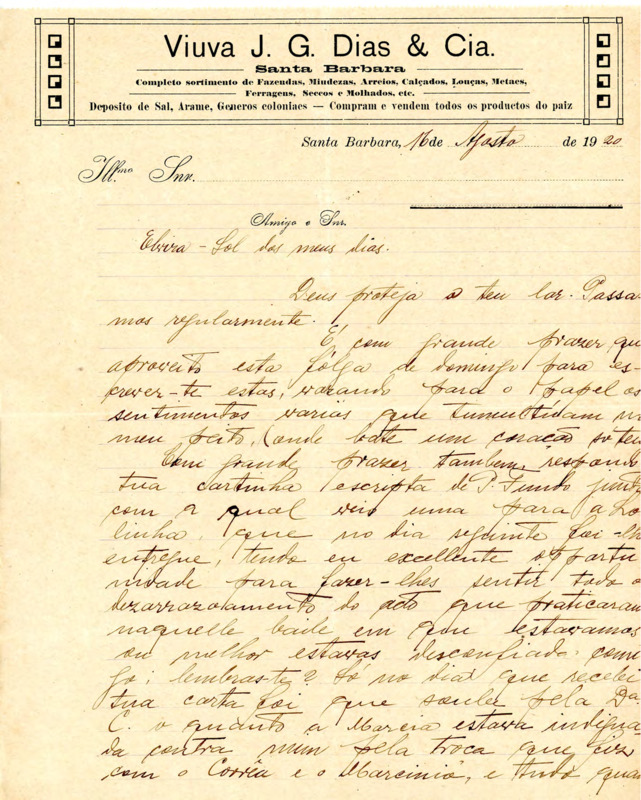 Viuva J. G. Dias & Cia.
Santa Barbara
Completo sortimento de Fazendas, Miudezas, Arreios, Calçados, Louças, Metaes,
Ferragens, Seccos e Molhados, etc.
Deposito de Sal, Arame, Generos coloniaes — Compram e vendem todos os productos do paiz
Santa Barbara, 16 de Agosto de 1920
Illmo Snr.
Amigo e Snr.
Elvira - Sol dos meus dias.
Deus proteja o teu lar. Passa-
mos regularmente.
É com grande prazer que
aproveito esta fólga de domingo para es-
crever-te estas, vazando para o papel os
sentimentos varios que tumultuam no
meu peito, (onde bate um coração so teu
Com grande prazer, tambem, respondo
tua cartinha escripta de P. Fundo junto
com a qual veio uma para a Lo-
linha, que no dia seguinte foi-lhe
entregue, tendo eu excellente opportu
nidade para fazer-lhes sentir todo o
dezarrazoamento do acto que praticaram
naquelle baile em que estavamos
ou melhor estavas desconfiada comi
go; lembras-te? Só no dia que recebi
tua carta foi que soube pela Da.
C. o quanto a Marcia estava indigna
da contra mim pela troca que fiz
com o Corrêa e o Marcinio, e tudo quan